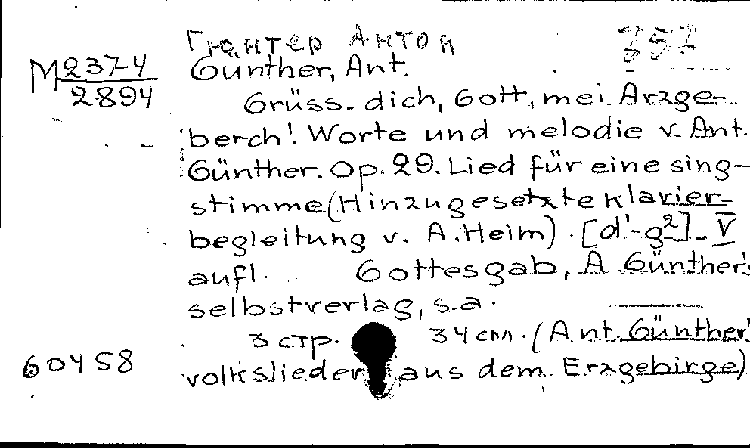 Гюнтер Антон
M 237-4
2894
Günther, Ant.
Grüss dich, Gott, mei Arzge-
berch! Worte und melodie v. Ant.
Günther. Op. 29. Lied für eine sing-
stimme (Hinzugesetzte klavier-
begleitung v. A. Heim). [d¹-g²]. V
aufl. Gottesgab, A Günther's
selbstverlag, s.a.
3 стр. 34 см. (Ant. Günther's
volkslieder aus dem Erzgebirge)
60458